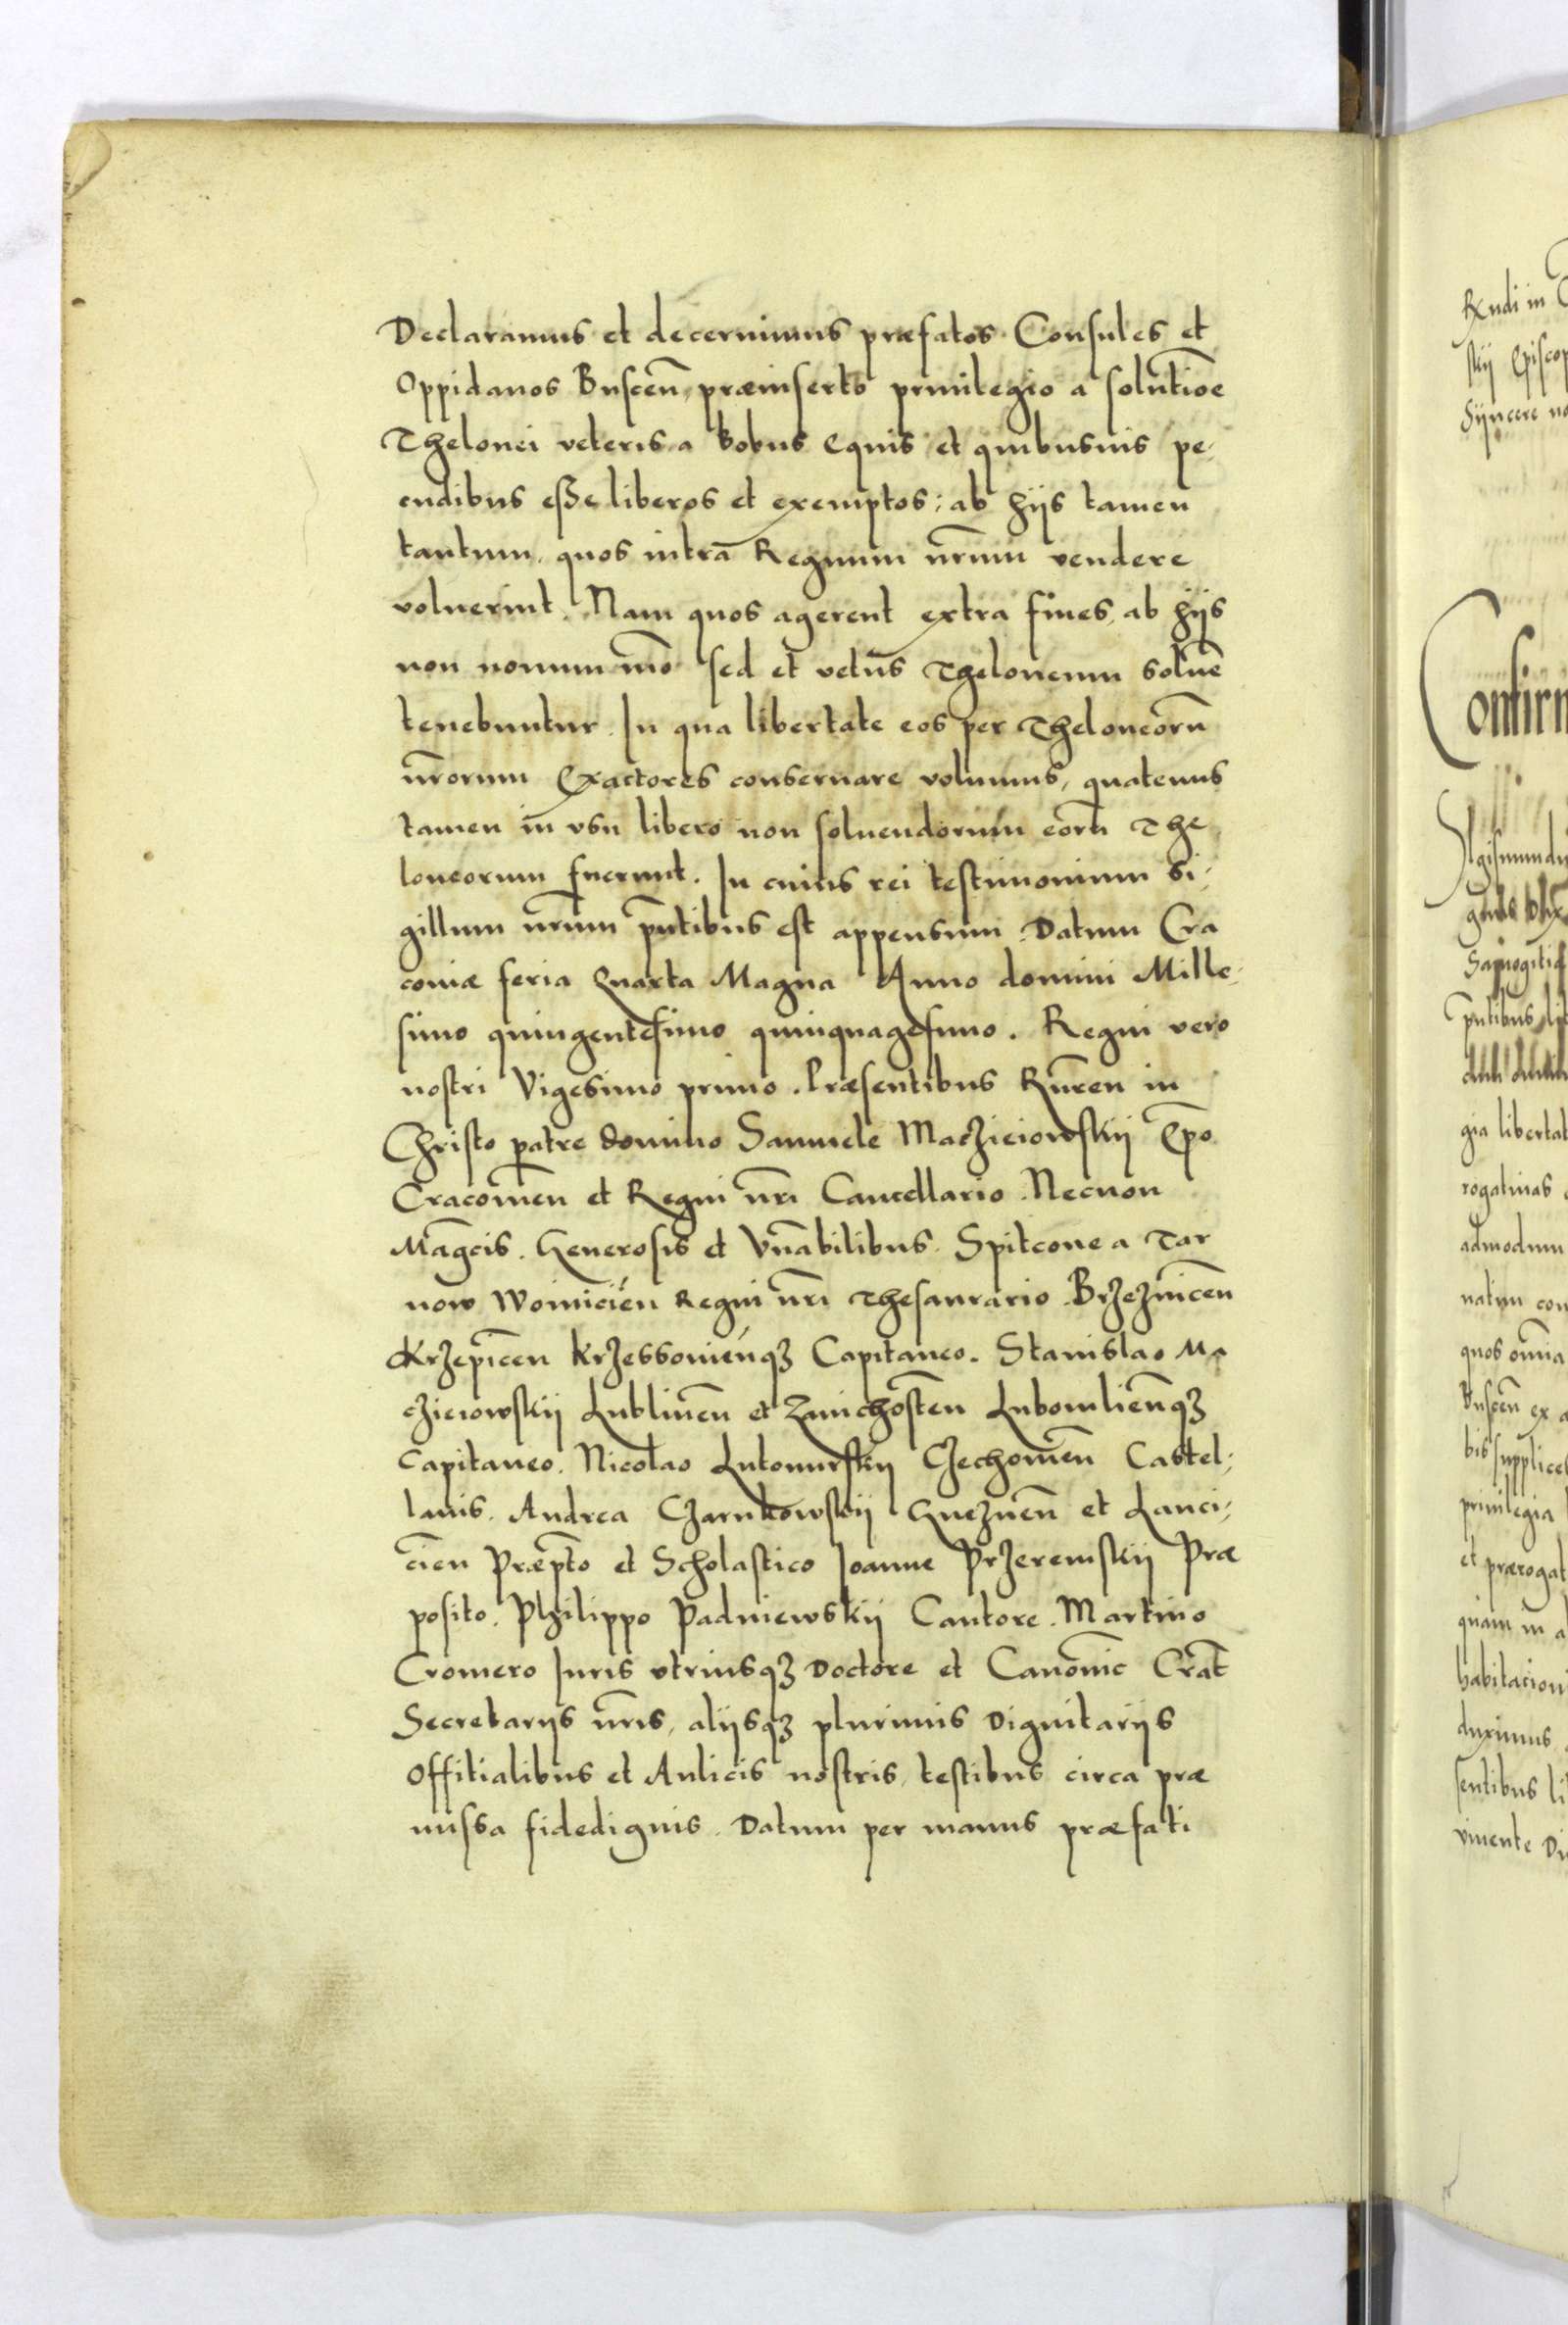 Declaramus et decernimus præfatos Consules et
Oppidanos Buscen̄, præinserto priuilegio a solut̄ioe
Thelonei veteris a bobus Equis et quibusuis pe-
cudibus eße liberos et exemptos; ab hijs tamen
tantum, quos intra Regnum nr̄um vendere
voluerint. Nam quos agerent extra fines, ab hijs
non nouum mō sed et vetus Theloneum soluē
tenebuntur. In qua libertate eos per Theloneoru̅
nr̄orum Exactores conseruare volumus, quatenus
tamen in vsu libero non soluendorum eoru̅ The
loneorum fuerunt. In cuius rei testimonium si-
gillum nr̄um pn̄tibus est appensum. Datum Cra
couiæ feria Quarta Magna Anno domini Mille-
simo quingentesimo quinquagesimo. Regni vero
nostri Vigesimo primo. Præsentibus Rn̄ren in
Christo patre domino Samuele Macziciowskij Ep̄o
Cracouien̄ et Regni nr̄i Cancellario. Necnon
Magc̄is. Generosis et Vn̄abilibus. Spitcone a Tar
now Woiniciēn Regni nr̄i Thesaurario. Brzeznicen̄
Krzepicen̄ Krzessouiēnqȝ Capitaneo. Stanislao Ma
cziciowskij Lublinen̄ et Zauichosten̄ Lubomlien̄qȝ
Capitaneo. Nicolao Lutomirskij Czechouien̄ Castel-
lanis. Andrea Czarnkowskij Gneznen̄ et Lanci-
cien̄ Præp̄to et Scholastico Joanne Przeremskij Præ
posito. Philippo Padniewskij Cantore. Martino
Cromero Juris vtriusqȝ Doctore et Canonic̄ Crac̄
Secretarijs nr̄is, alijsqȝ plurimis Dignitarijs
Offitialibus et Aulicis nostris, testibus circa præ
missa fidedignis. Datum per manus præfati
Rx̄ndi in
skij Episcop
Syncere no
Confirm
gismundu
Samogitiæ
pn̄tibus
gia libertat
rogatiuas
admodum
natim con
quos omnia
Buscen̄ ex a
bis supplice
priuilegia
et prærogat
quam in a
habitacion
duximus
sentibus li
viuente Di